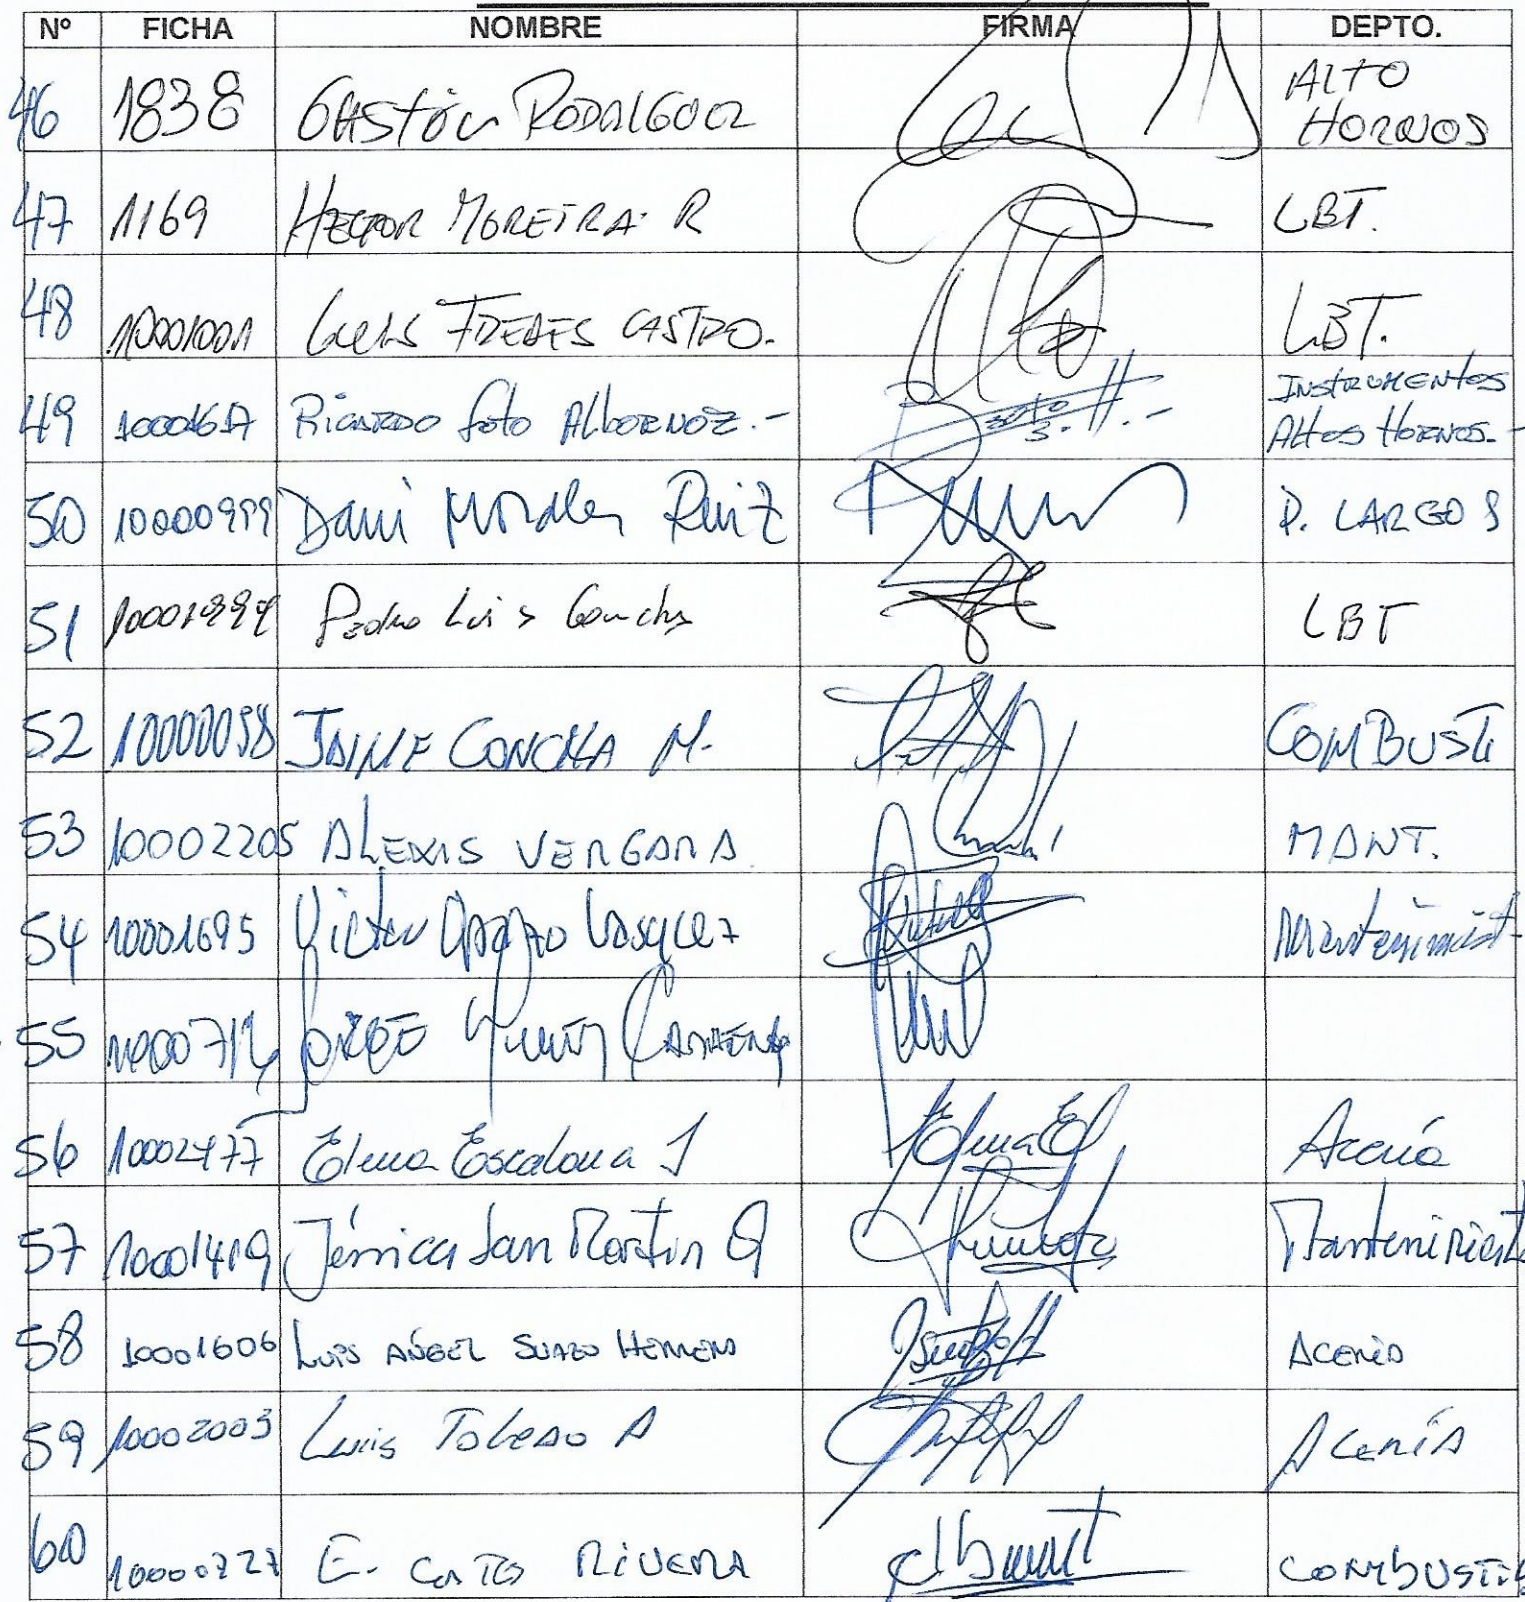 Nº FICHA NOMBRE FIRMA DEPTO.
46 1838 GASTÓN RODRIGUEZ ALTO
HORNOS
47 1169 HECTOR MOREIRA R LBT.
48 10001001 LUIS FREDES CASTRO. LBT.
49 Ricardo Soto Albornoz.- INSTRUMENTOS
Altos Hornos.-
50 10000999 Dani Morales Ruiz P. LARGOS
51 Pedro Luis Concha LBT
52 10000058 JAIME CONCHA M. COMBUSTI
53 10002205 ALEXIS VERGARA MANT.
54 10001695 Victor Vasquez
55 JORGE
56 10002477 Elena Escalona J Acería
57 10001419 Jéssica San Martin Q Mantenimiento
58 10001606 LUIS ANGEL SUAZO HERRERA ACERÍA
59 10002003 Luis TOLEDO A ACERÍA
60 10000727 E. RIVERA COMBUSTIB